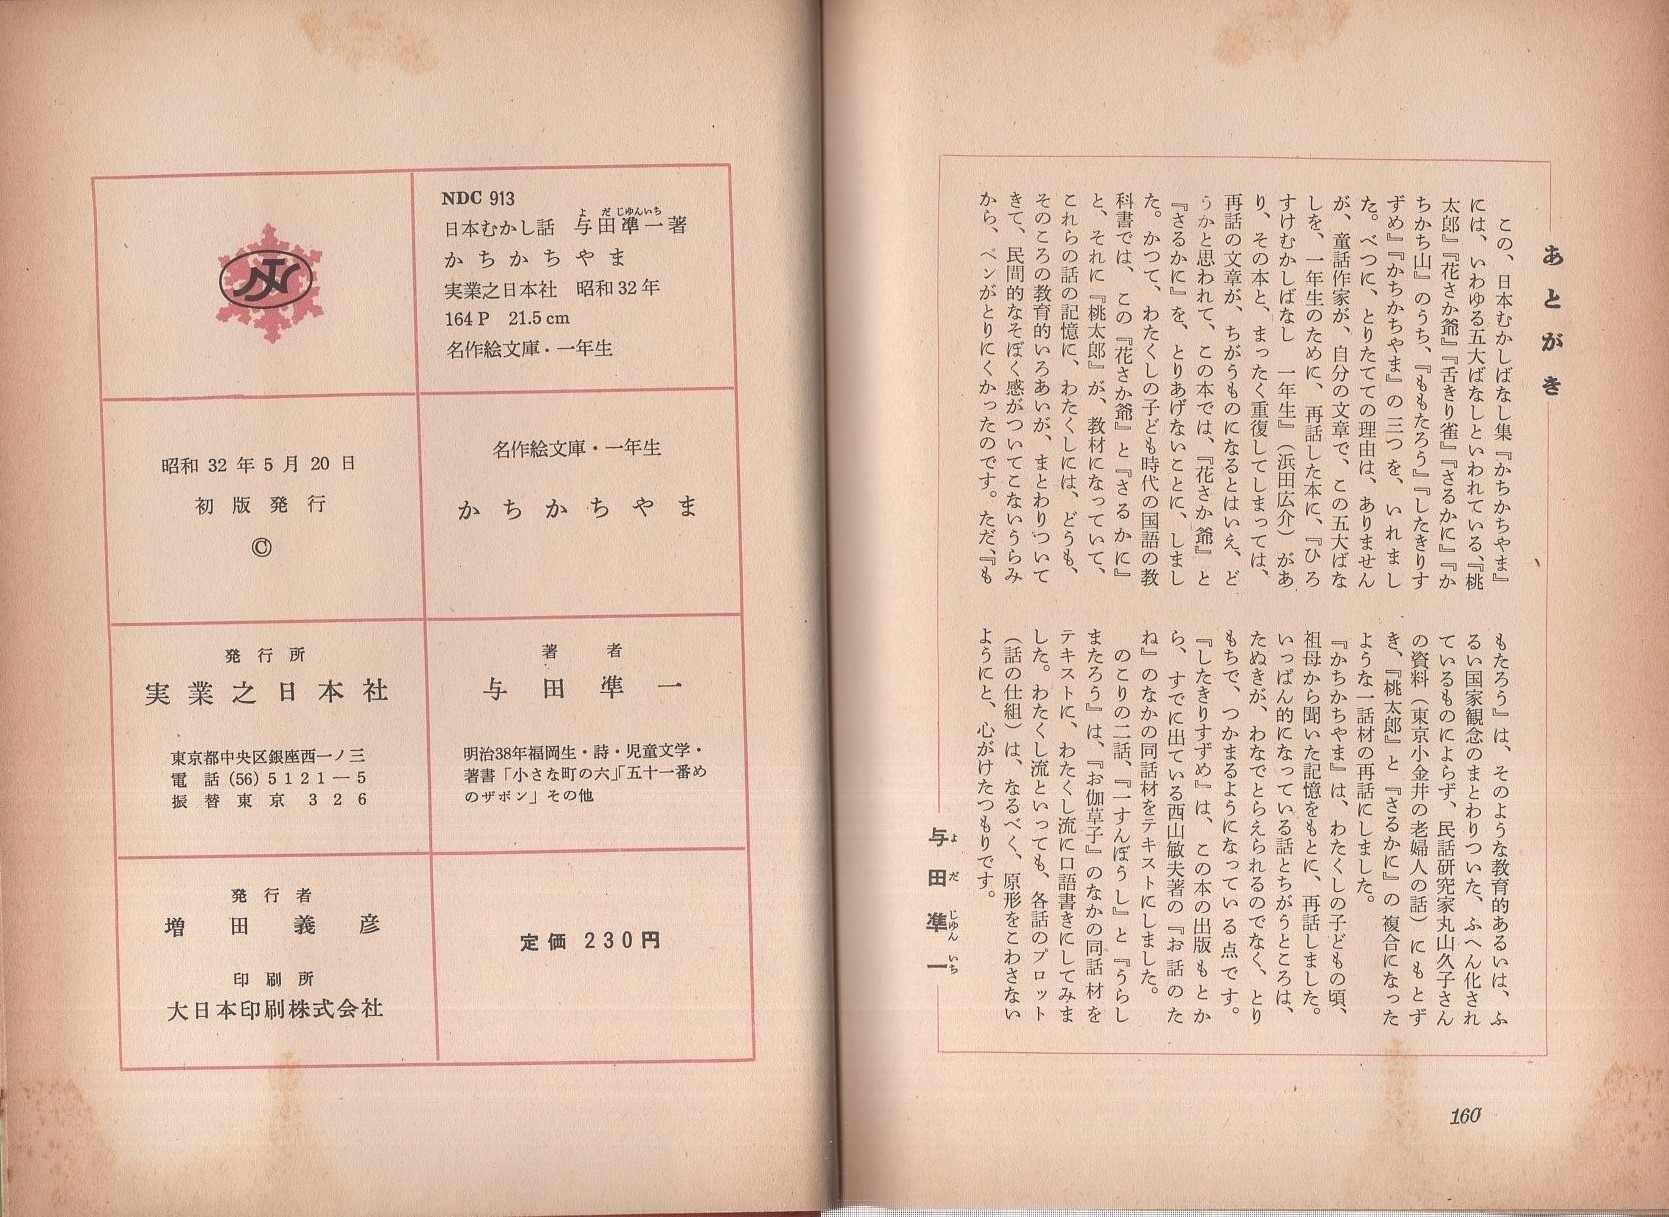 あとがき
この、日本むかしばなし集『かちかちやま』
には、いわゆる五大ばなしといわれている、『桃
太郎』『花さか爺』『舌きり雀』『さるかに』『か
ちかち山』のうち、『ももたろう』『したきりす
ずめ』『かちかちやま』の三つを、いれまし
た。べつに、とりたてての理由は、ありません
が、童話作家が、自分の文章で、この五大ばな
しを、一年生のために、再話した本に、『ひろ
すけむかしばなし　一年生』（浜田広介）があ
り、その本と、まったく重復してしまっては、
再話の文章が、ちがうものになるとはいえ、ど
うかと思われて、この本では、『花さか爺』と
『さるかに』を、とりあげないことに、しまし
た。かつて、わたくしの子ども時代の国語の教
科書では、この『花さか爺』と『さるかに』
と、それに『桃太郎』が、教材になっていて、
これらの話の記憶に、わたくしには、どうも、
そのころの教育的いろあいが、まとわりついて
きて、民間的なそぼく感がついてこないうらみ
から、ペンがとりにくかったのです。ただ、『も
もたろう』は、そのような教育的あるいは、ふ
るい国家観念のまとわりついた、ふへん化され
ているものによらず、民話研究家丸山久子さん
の資料（東京小金井の老婦人の話）にもとず
き、『桃太郎』と『さるかに』の複合になった
ような一話材の再話にしました。
『かちかちやま』は、わたくしの子どもの頃、
祖母から聞いた記憶をもとに、再話しました。
いっぱん的になっている話とちがうところは、
たぬきが、わなでとらえられるのでなく、とり
もちで、つかまるようになっている点です。
『したきりすずめ』は、この本の出版もとか
ら、すでに出ている西山敏夫著の『お話のた
ね』のなかの同話材をテキストにしました。
のこりの二話、『一すんぼうし』と『うらし
またろう』は、『お伽草子』のなかの同話材を
テキストに、わたくし流に口語書きにしてみま
した。わたくし流といっても、各話のプロット
（話の仕組）は、なるべく、原形をこわさない
ようにと、心がけたつもりです。
与田凖一
よだじゅんいち
160
NDC 913
よだじゅんいち
日本むかし話　与田凖一著
かちかちやま
実業之日本社　昭和32年
164 P　21.5 cm
名作絵文庫・一年生
名作絵文庫・一年生
かちかちやま
昭和 32 年 5 月 20 日
初版発行
©
著者
与田凖一
明治38年福岡生・詩・児童文学・
著書「小さな町の六」「五十一番め
のザボン」その他
発行所
実業之日本社
東京都中央区銀座西一ノ三
電話 (56) 5121—5
振替東京 326
定価 230円
発行者
増田義彦
印刷所
大日本印刷株式会社